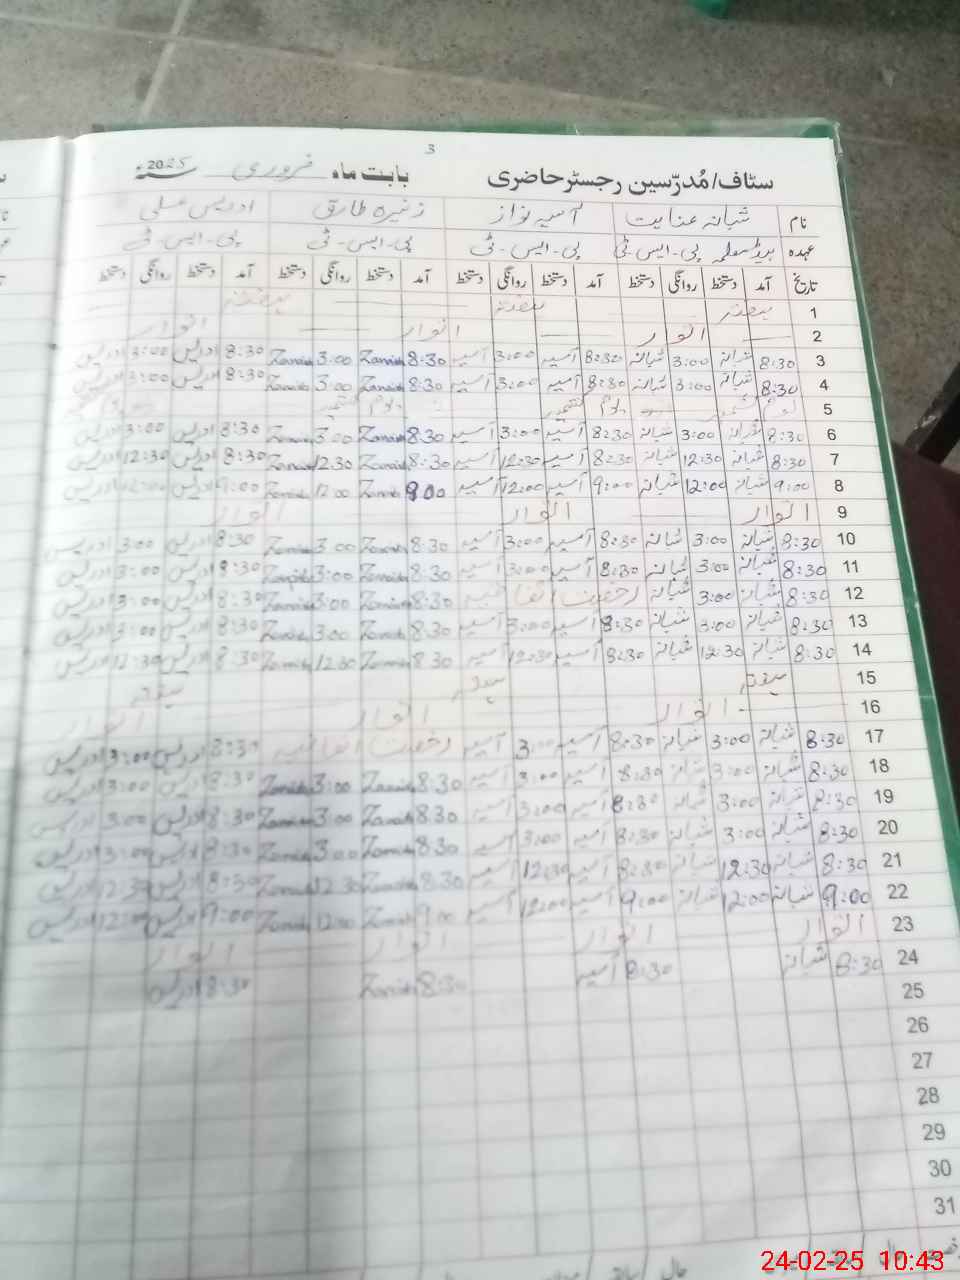 3
سٹاف/مُدرّسین رجسٹر حاضری بابت ماہ فروری سنہ 2025ء
نام شبانہ عنایت آسیہ نواز زنیرہ طارق ادریس علی
عہدہ ہیڈ معلمہ پی-ایس-ٹی پی-ایس-ٹی پی-ایس-ٹی پی-ایس-ٹی
تاریخ آمد دستخط روانگی دستخط آمد دستخط روانگی دستخط آمد دستخط روانگی دستخط آمد دستخط روانگی دستخط
1 ہفتہ ہفتہ ہفتہ
2 اتوار اتوار اتوار
3 8:30 شبانہ 3:00 شبانہ 8:30 آسیہ 3:00 آسیہ 8:30 Zanish 3:00 Zanish 8:30 ادریس 3:00 ادریس
4 8:30 شبانہ 3:00 شبانہ 8:30 آسیہ 3:00 آسیہ 8:30 Zanish 3:00 Zanish 8:30 ادریس 3:00 ادریس
5 یوم کشمیر یوم کشمیر یوم کشمیر
6 8:30 شبانہ 3:00 شبانہ 8:30 آسیہ 3:00 آسیہ 8:30 Zanish 3:00 Zanish 8:30 ادریس 3:00 ادریس
7 8:30 شبانہ 12:30 شبانہ 8:30 آسیہ 12:30 آسیہ 8:30 Zanish 12:30 Zanish 8:30 ادریس 12:30 ادریس
8 9:00 شبانہ 12:00 شبانہ 9:00 آسیہ 12:00 آسیہ 9:00 Zanish 12:00 Zanish 9:00 ادریس 12:00 ادریس
9 اتوار اتوار اتوار
10 8:30 شبانہ 3:00 شبانہ 8:30 آسیہ 3:00 آسیہ 8:30 Zanish 3:00 Zanish 8:30 ادریس 3:00 ادریس
11 8:30 شبانہ 3:00 شبانہ 8:30 آسیہ 3:00 آسیہ 8:30 Zanish 3:00 Zanish 8:30 ادریس 3:00 ادریس
12 8:30 شبانہ 3:00 شبانہ رخصت اتفاقیہ 8:30 Zanish 3:00 Zanish 8:30 ادریس 3:00 ادریس
13 8:30 شبانہ 3:00 شبانہ 8:30 آسیہ 3:00 آسیہ 8:30 Zanish 3:00 Zanish 8:30 ادریس 3:00 ادریس
14 8:30 شبانہ 12:30 شبانہ 8:30 آسیہ 12:30 آسیہ 8:30 Zanish 12:30 Zanish 8:30 ادریس 12:30 ادریس
15 ہفتہ ہفتہ ہفتہ
16 اتوار اتوار اتوار
17 8:30 شبانہ 3:00 شبانہ 8:30 آسیہ 3:00 آسیہ رخصت اتفاقیہ 8:30 ادریس 3:00 ادریس
18 8:30 شبانہ 3:00 شبانہ 8:30 آسیہ 3:00 آسیہ 8:30 Zanish 3:00 Zanish 8:30 ادریس 3:00 ادریس
19 8:30 شبانہ 3:00 شبانہ 8:30 آسیہ 3:00 آسیہ 8:30 Zanish 3:00 Zanish 8:30 ادریس 3:00 ادریس
20 8:30 شبانہ 3:00 شبانہ 8:30 آسیہ 3:00 آسیہ 8:30 Zanish 3:00 Zanish 8:30 ادریس 3:00 ادریس
21 8:30 شبانہ 12:30 شبانہ 8:30 آسیہ 12:30 آسیہ 8:30 Zanish 12:30 Zanish 8:30 ادریس 12:30 ادریس
22 9:00 شبانہ 12:00 شبانہ 9:00 آسیہ 12:00 آسیہ 9:00 Zanish 12:00 Zanish 9:00 ادریس 12:00 ادریس
23 اتوار اتوار اتوار اتوار
24 8:30 شبانہ 8:30 آسیہ 8:30 Zanish 8:30 ادریس
25
26
27
28
29
30
31
24-02-25 10:43